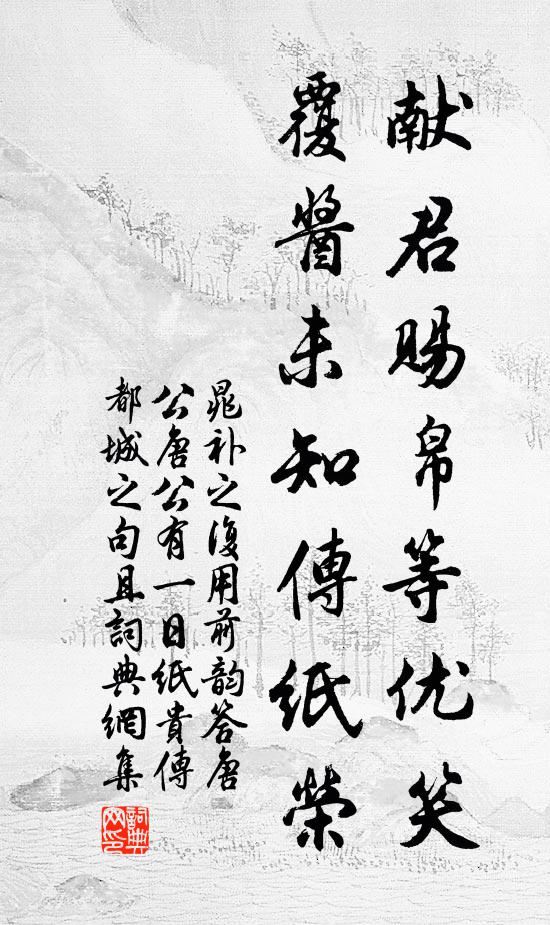 献君赐帛等优笑
覆醬未知傳紙榮
晁补之復用前韵答唐
公唐公有一日紙貴傳
都城之句且詞典網集
詞典网印